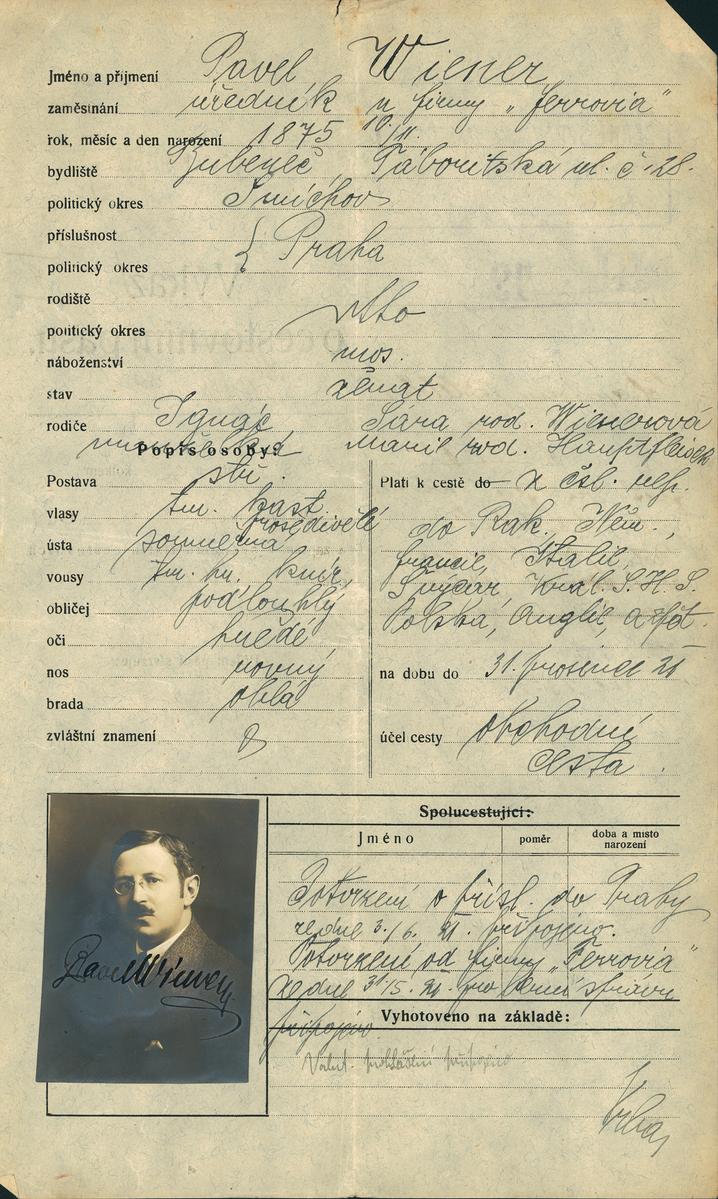 Jméno a přijmení Pavel Wiener
zaměstnání úředník u firmy „Ferrovia“
rok, měsíc a den narození 1875 10./11.
bydliště Bubeneč Táboritská ul. č. 28.
politický okres Smíchov
příslušnost
politický okres } Praha
rodiště
politický okres
náboženství mos.
stav ženat
rodiče Ignác Sára rod. Wienerová
Marie rod.
Popis osoby:
Postava stř.
vlasy tm. kašt. prošedivělé
ústa souměrná
vousy tm. hn. knír
obličej podlouhlý
oči hnědé
nos rovný
brada oblá
zvláštní znamení
Platí k cestě do z čsl. rep.
do Rak., Něm.,
Francie, Italie,
Švýcar, Král. S. H. S.
Polska, Anglie, a zpět.
na dobu do 31. prosince 21
účel cesty obchodní
cesta.
Spolucestující:
Jméno poměr doba a místo narození
Potvrzení o přísl. do Prahy
ze dne 3./6. 21. připojeno.
Potvrzení od firmy „Ferrovia“
ze dne 31/5. 21. pro správu
připojeno
Vyhotoveno na základě:
Pavel Wiener